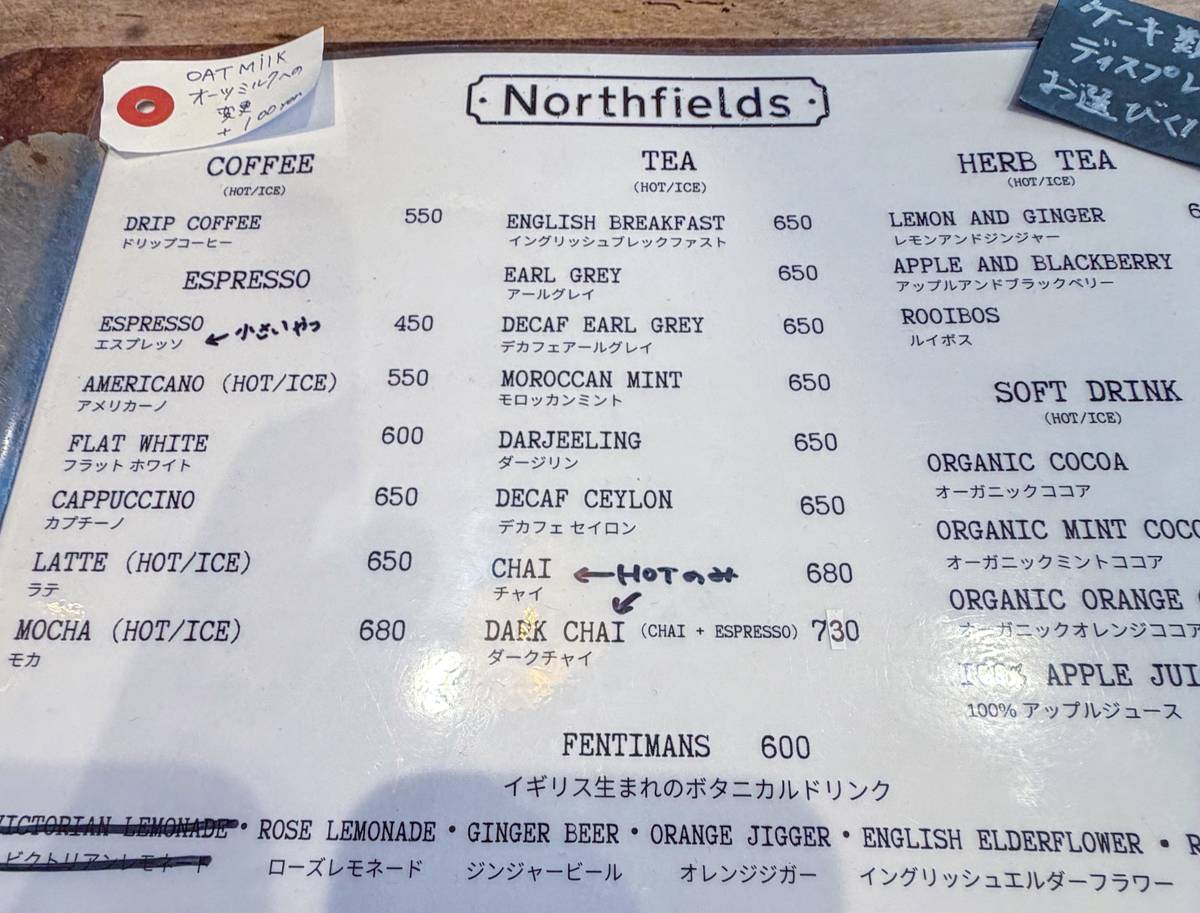 OAT MilK
オーツミルクへの
変更
+ 100 yen
ケーキ
ディスプレ
お選びく
Northfields
COFFEE
(HOT/ICE)
DRIP COFFEE 550
ドリップコーヒー
ESPRESSO
ESPRESSO ← 小さいやつ 450
エスプレッソ
AMERICANO (HOT/ICE) 550
アメリカーノ
FLAT WHITE 600
フラット ホワイト
CAPPUCCINO 650
カプチーノ
LATTE (HOT/ICE) 650
ラテ
MOCHA (HOT/ICE) 680
モカ
TEA
(HOT/ICE)
ENGLISH BREAKFAST 650
イングリッシュブレックファスト
EARL GREY 650
アールグレイ
DECAF EARL GREY 650
デカフェアールグレイ
MOROCCAN MINT 650
モロッカンミント
DARJEELING 650
ダージリン
DECAF CEYLON 650
デカフェ セイロン
CHAI ← HOTのみ 680
チャイ
DARK CHAI (CHAI + ESPRESSO) 730
ダークチャイ
HERB TEA
(HOT/ICE)
LEMON AND GINGER 6
レモンアンドジンジャー
APPLE AND BLACKBERRY
アップルアンドブラックベリー
ROOIBOS
ルイボス
SOFT DRINK
(HOT/ICE)
ORGANIC COCOA
オーガニックココア
ORGANIC MINT COCO
オーガニックミントココア
ORGANIC ORANGE
オーガニックオレンジココア
100% APPLE JUI
100% アップルジュース
FENTIMANS 600
イギリス生まれのボタニカルドリンク
VICTORIAN LEMONADE・ROSE LEMONADE・GINGER BEER・ORANGE JIGGER・ENGLISH ELDERFLOWER・R
ビクトリアンレモネード ローズレモネード ジンジャービール オレンジジガー イングリッシュエルダーフラワー